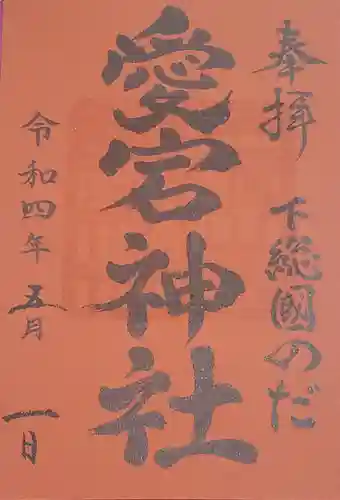 奉拝 下総國のだ
愛宕神社
令和四年五月一日